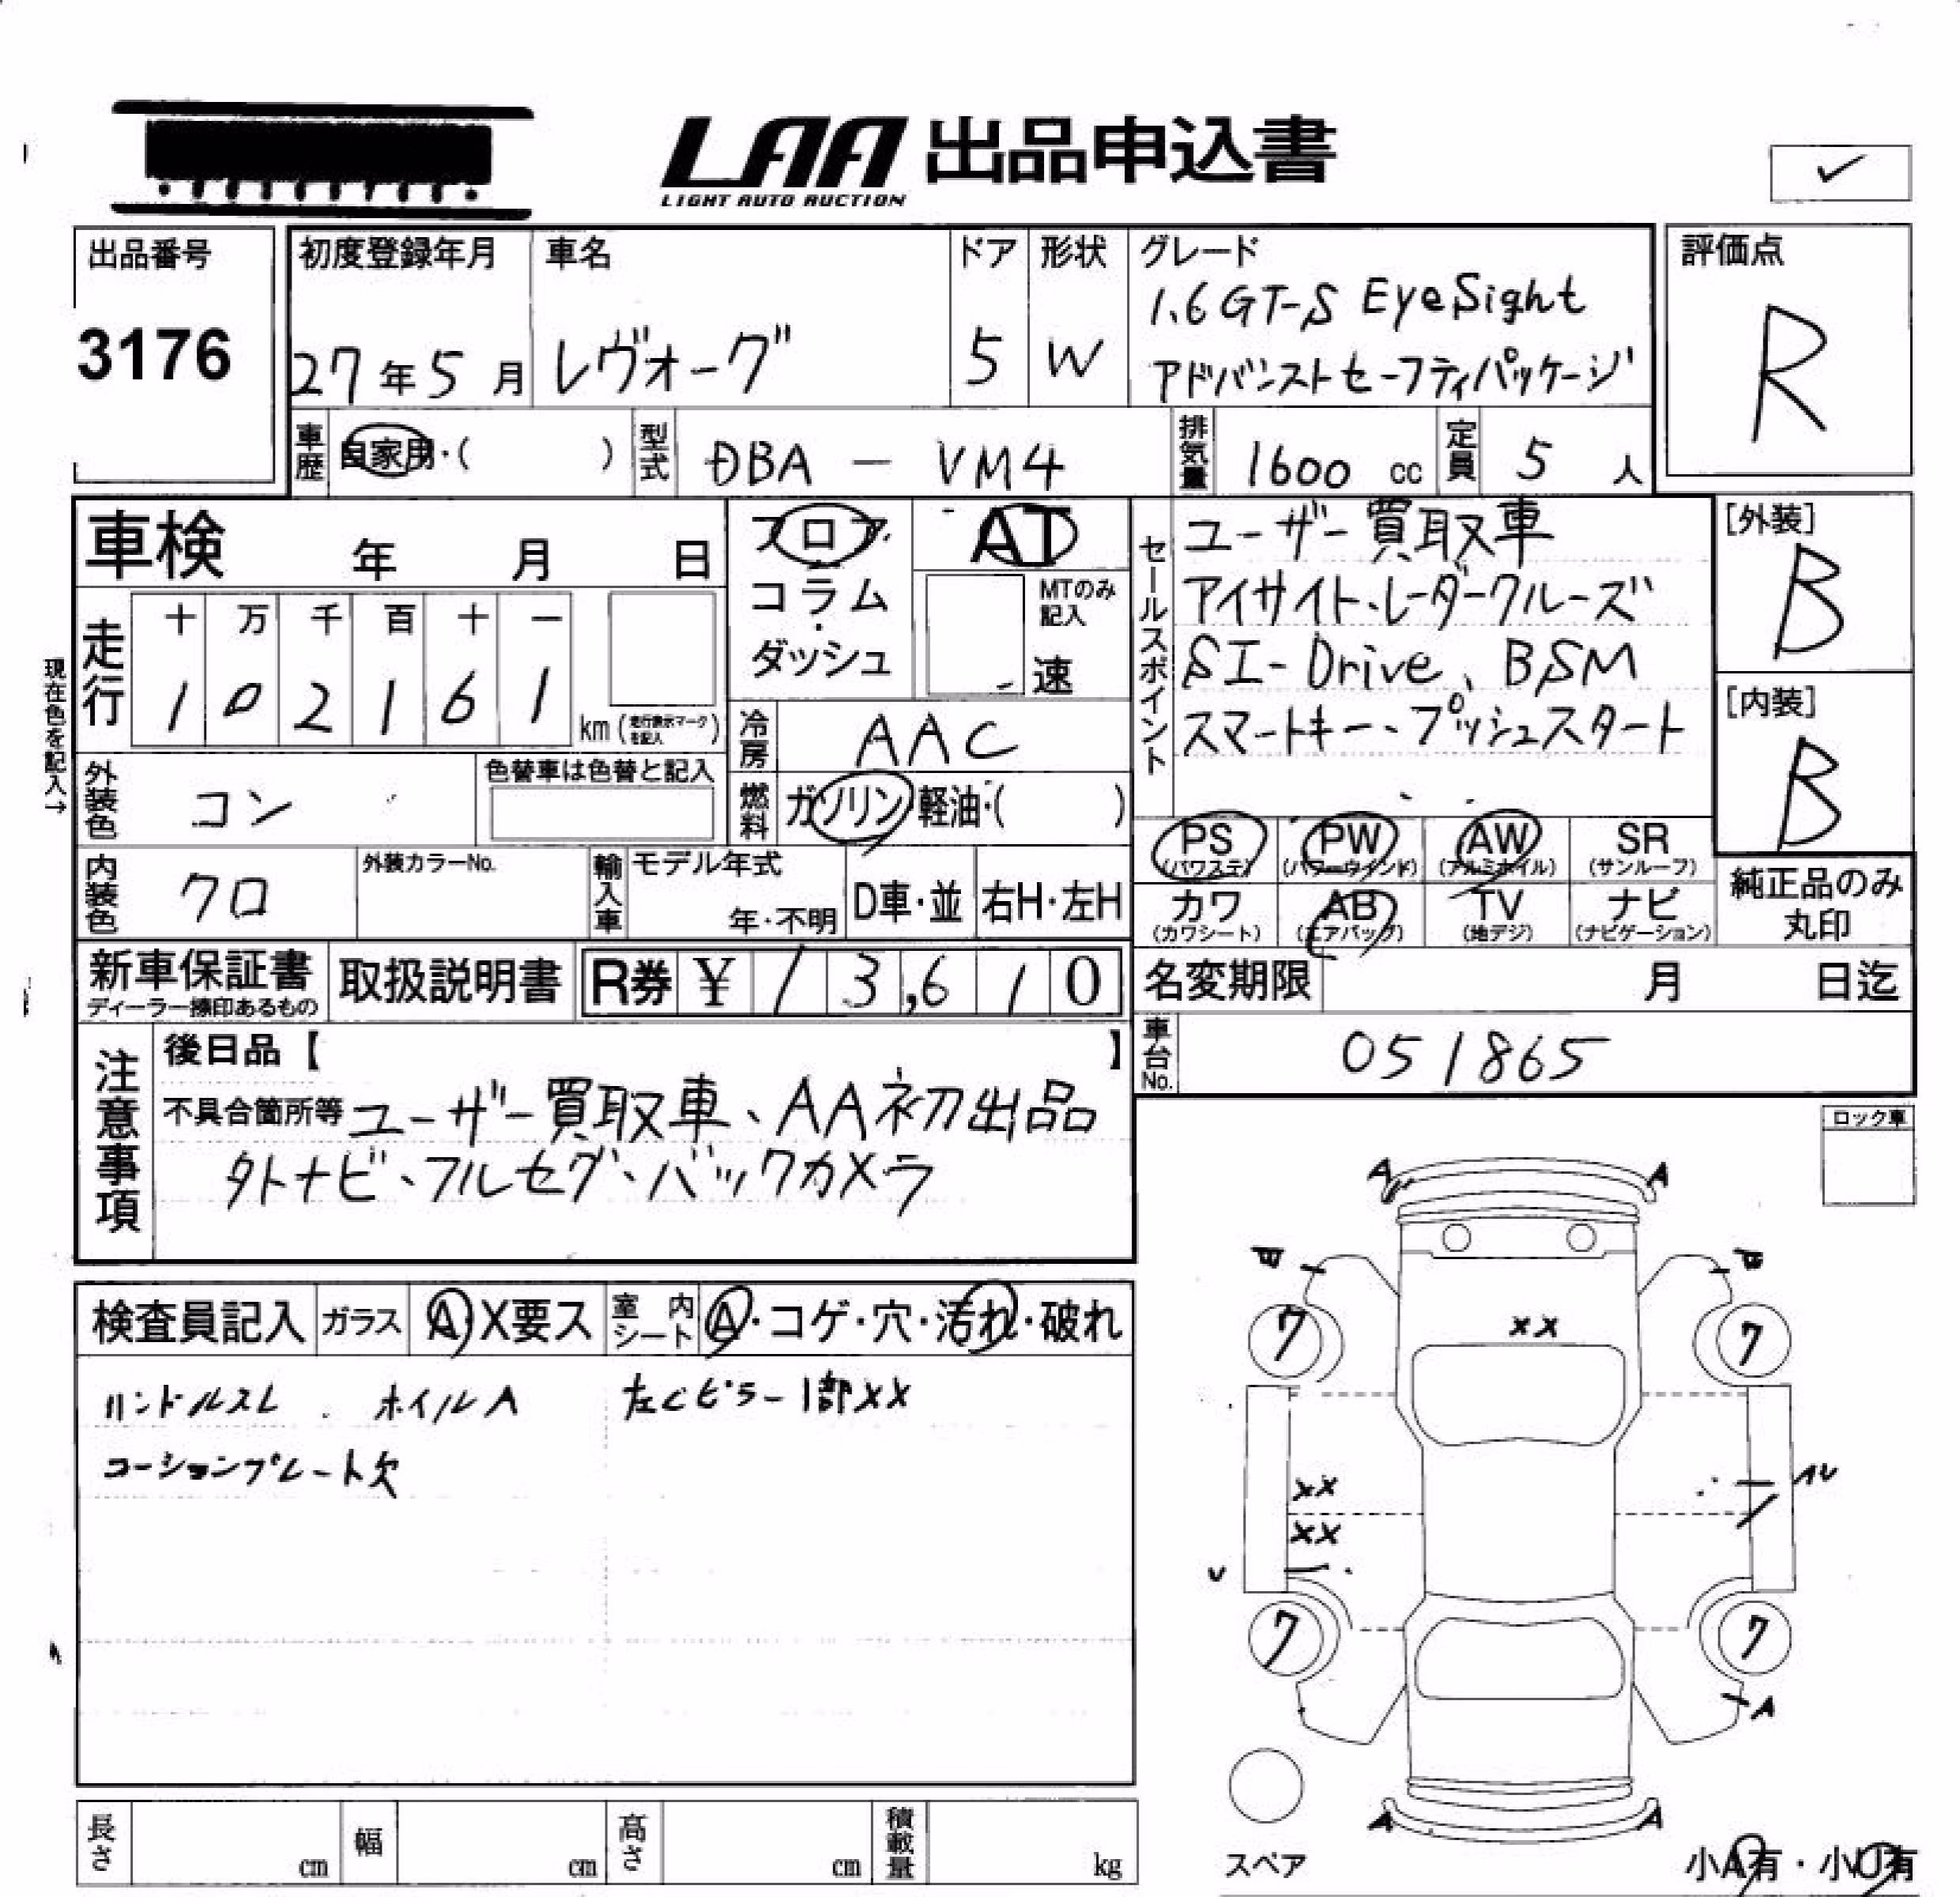 LAA 出品申込書
LIGHT AUTO AUCTION
出品番号
3176
初度登録年月
27年5月
車名
レヴォーグ
ドア
5
形状
W
グレード
1.6GT-S EyeSight
アドバンストセーフティパッケージ
評価点
R
車歴
自家用・( )
型式
DBA — VM4
排気量
1600 cc
定員
5 人
車検 年 月 日
走行
十 万 千 百 十 一
1 0 2 1 6 1
km (走行表示マークを記入)
現在色を記入→
外装色
コン
色替車は色替と記入
内装色
クロ
外装カラーNo.
フロア
コラム
ダッシュ
AT
MTのみ
記入
速
冷房
AAC
燃料
ガソリン・軽油・( )
輸入車
モデル年式
年・不明
D車・並
右H・左H
セールスポイント
ユーザー買取車
アイサイト、レーダークルーズ
SI-Drive、BSM
スマートキー、プッシュスタート
[外装]
B
[内装]
B
PS (パワステ)
PW (パワーウインド)
AW (アルミホイル)
SR (サンルーフ)
カワ (カワシート)
AB (エアバッグ)
TV (地デジ)
ナビ (ナビゲーション)
純正品のみ
丸印
新車保証書
ディーラー捺印あるもの
取扱説明書
R券 ¥ 13,610
名変期限 月 日迄
車台No.
051865
注意事項
後日品【 】
不具合箇所等 ユーザー買取車、AA初出品
外ナビ、フルセグ、バックカメラ
ロック車
検査員記入
ガラス
A・X要ス
室内シート
A・コゲ・穴・汚れ・破れ
ハンドルスレ ホイルA 左Cピラー1部XX
コーションプレート欠
A A
ワ ワ
XX
XX
XX
U
ワ ワ
A
A A
スペア
小A有・小U有
長さ cm
幅 cm
高さ cm
積載量 kg